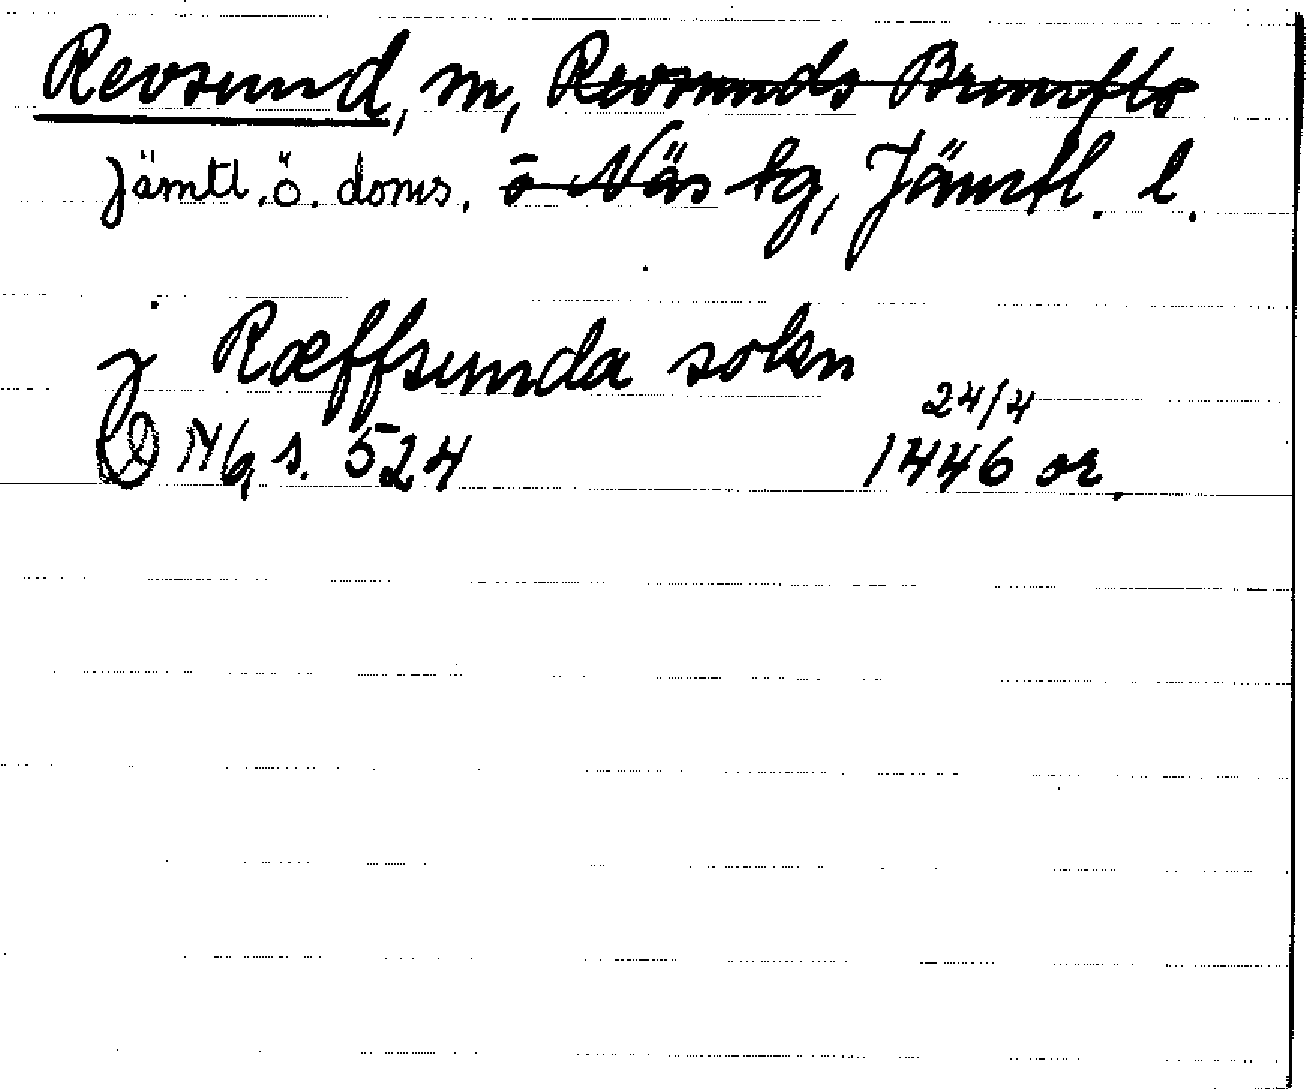 Revsund, sn, Revsunds Brunflo
Jämtl. ö. doms. o Näs tg, Jämtl. l.
j Ræffsunda sokn
24/4
DN 16, s. 524 1446 or.